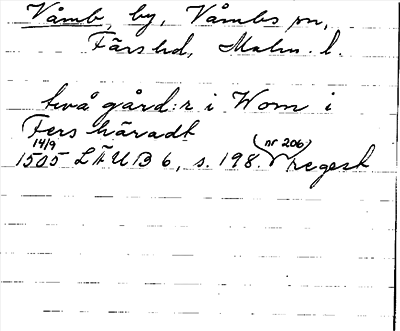 Våmb, by, Våmbs sn,
Färs hd, Malm. l.
två gård:r i Wom i
Fers häradt
14/9 (nr 206)
1505 LÄUB 6, s. 198. regest